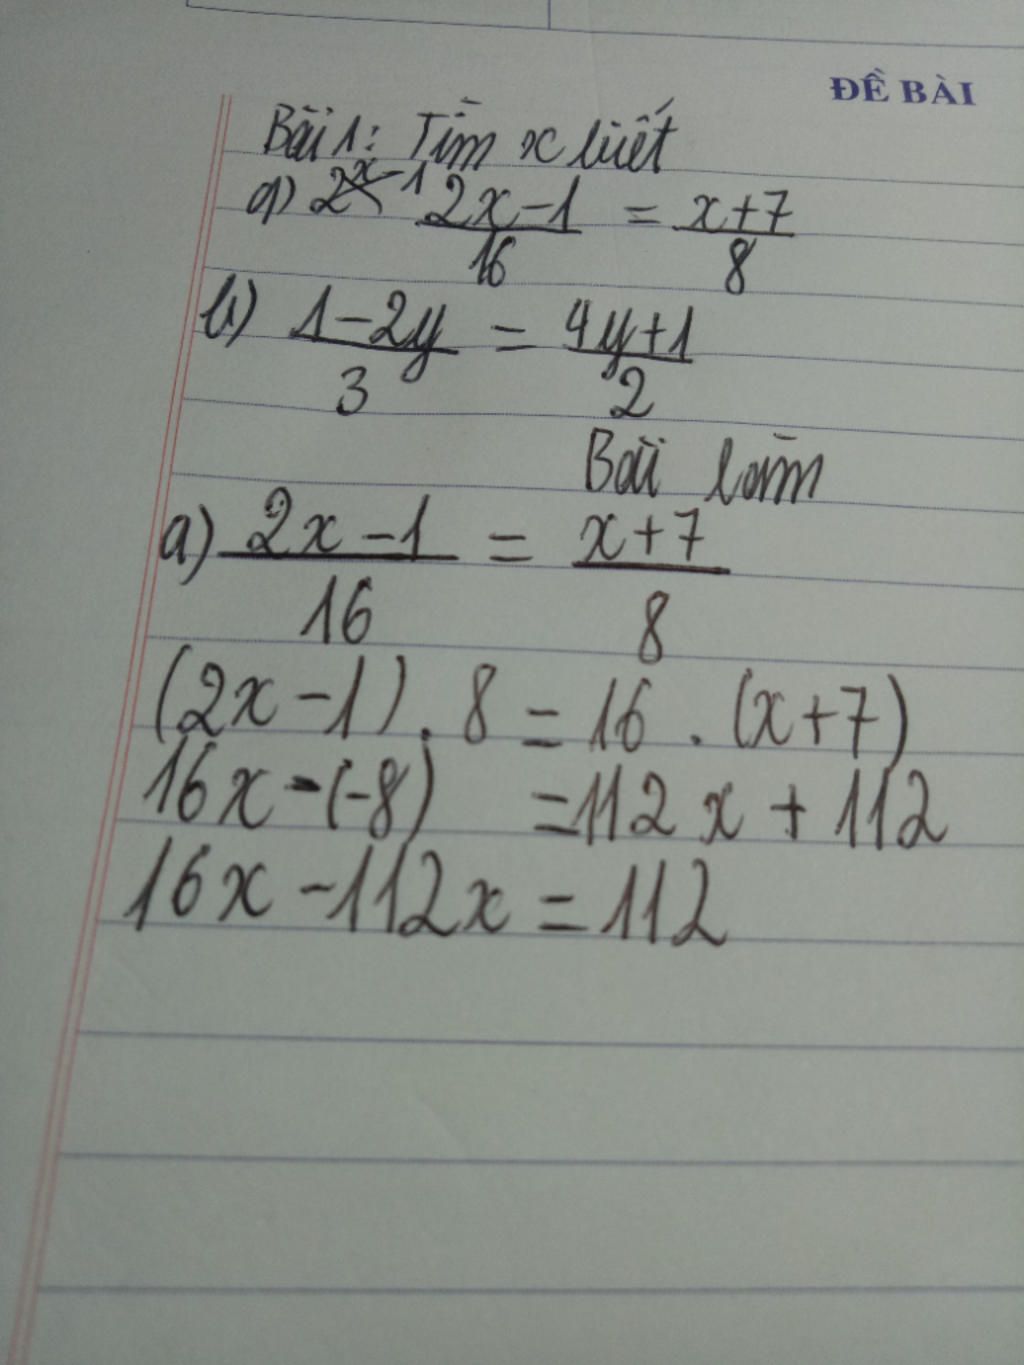 ĐỀ BÀI
Bài 1: Tìm x biết
a) 2x-1 2x-1/16 = x+7/8
b) 1-2y/3 = 4y+1/2
Bài làm
a) 2x-1/16 = x+7/8
(2x-1).8 = 16.(x+7)
16x-(-8) = 112x+112
16x-112x = 112